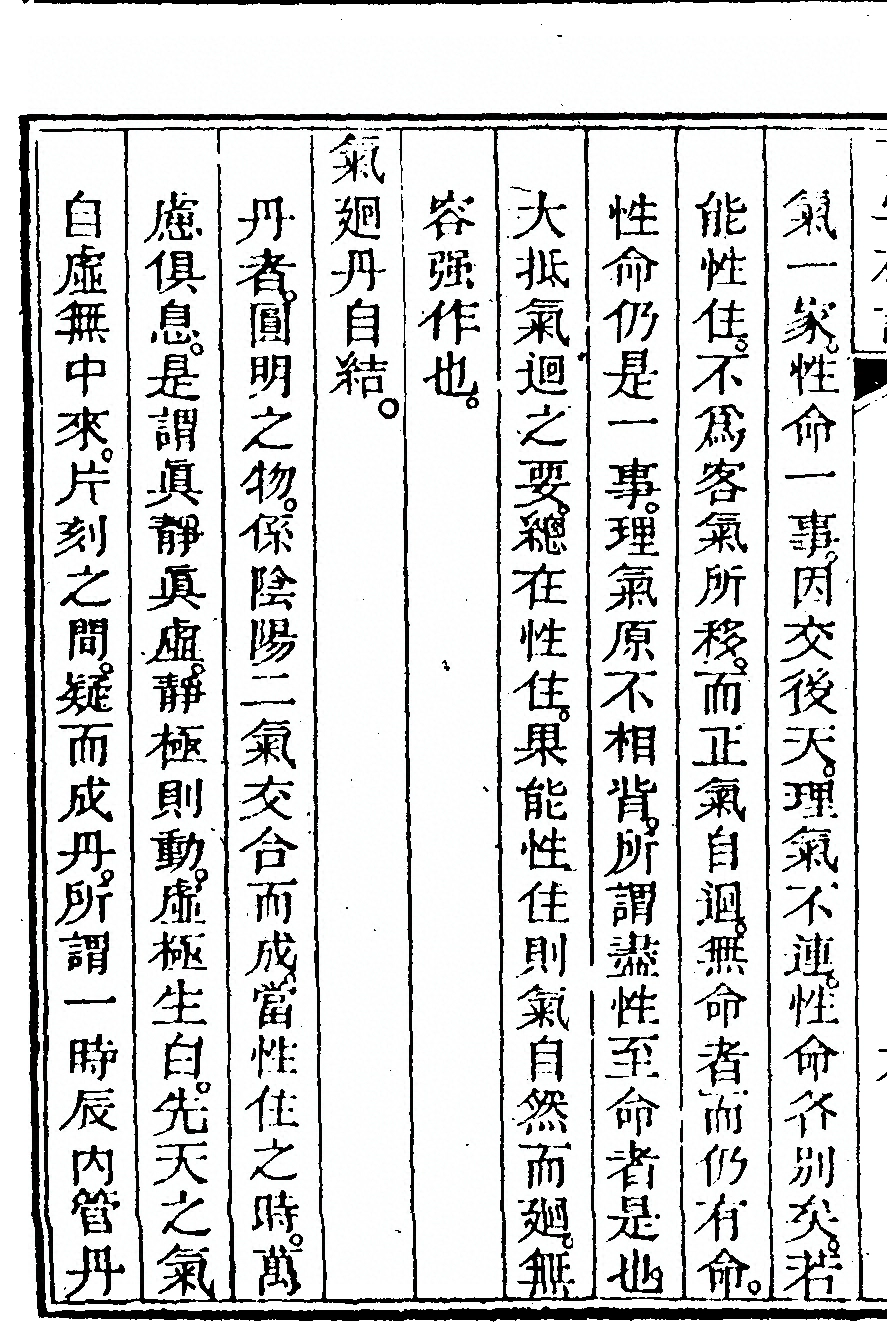 氣一家。性命一事。因交後天。理氣不連。性命各別矣。若
能性住。不爲客氣所移。而正氣自迴。無命者而仍有命。
性命仍是一事。理氣原不相背。所謂盡性至命者是也。
大抵氣迴之要。總在性住。果能性住則氣自然而廻。無
容强作也。
氣廻丹自結。
丹者。圓明之物。係陰陽二氣交合而成。當性住之時。萬
慮俱息。是謂眞靜眞虛。靜極則動。虛極生白。先天之氣
自虛無中來。片刻之間。疑而成丹。所謂一時辰內管丹